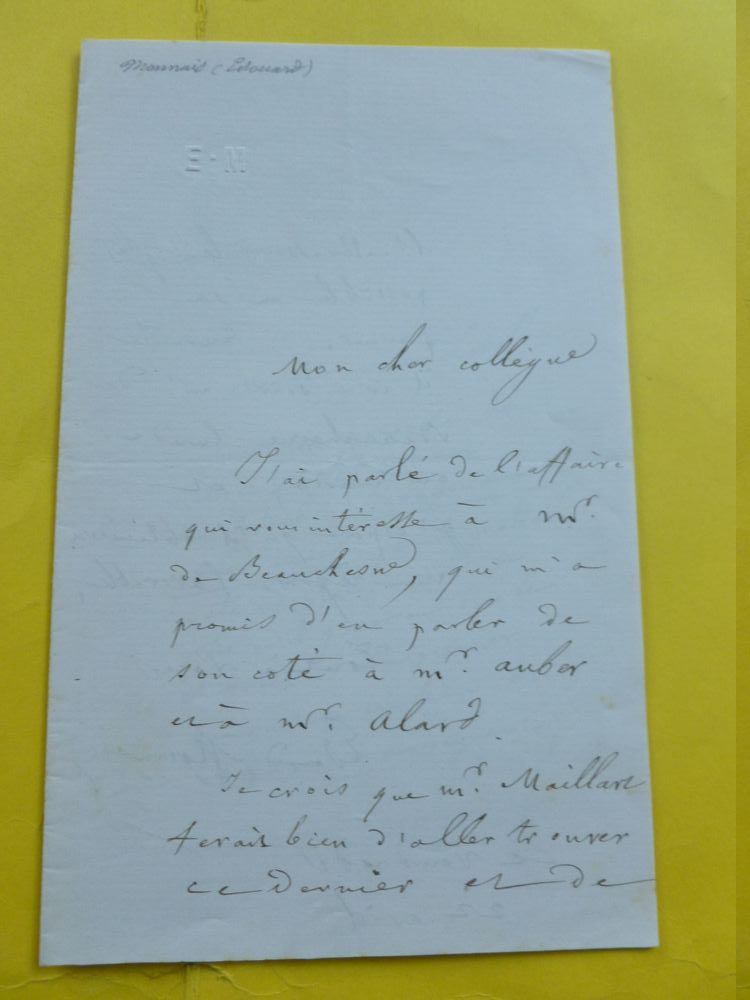 Monnais (Edouard)
E-M
Mon cher collègue
J'ai parlé de l'affaire
qui vous intéresse à Mr.
de Beauchesne, qui m'a
promis d'en parler de
son coté à Mr. Auber
et à Mr. Alard.
Je crois que Mr. Maillart
ferait bien d'aller trouver
ce dernier et de